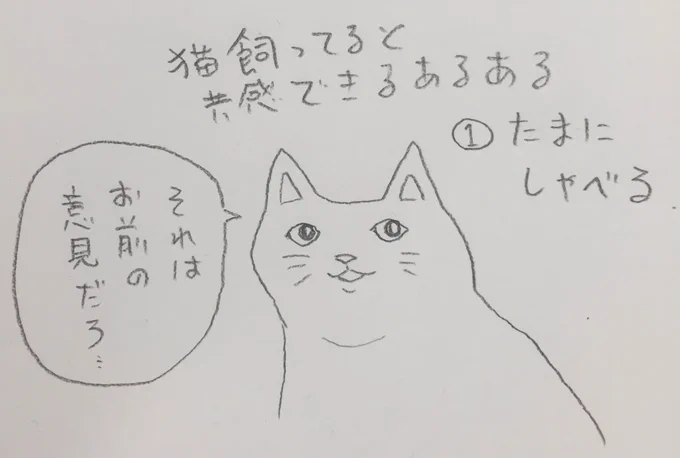 猫飼ってると
共感できるあるある
①たまに
しゃべる
それは
お前の
意見だろ…